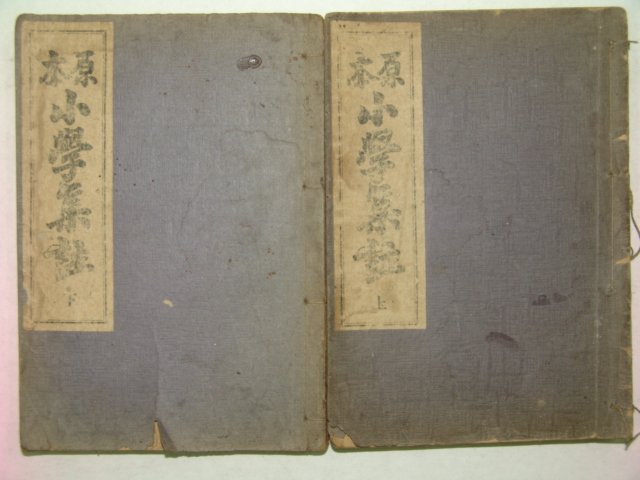 原本
小學集註
上
原本
小學集註
下